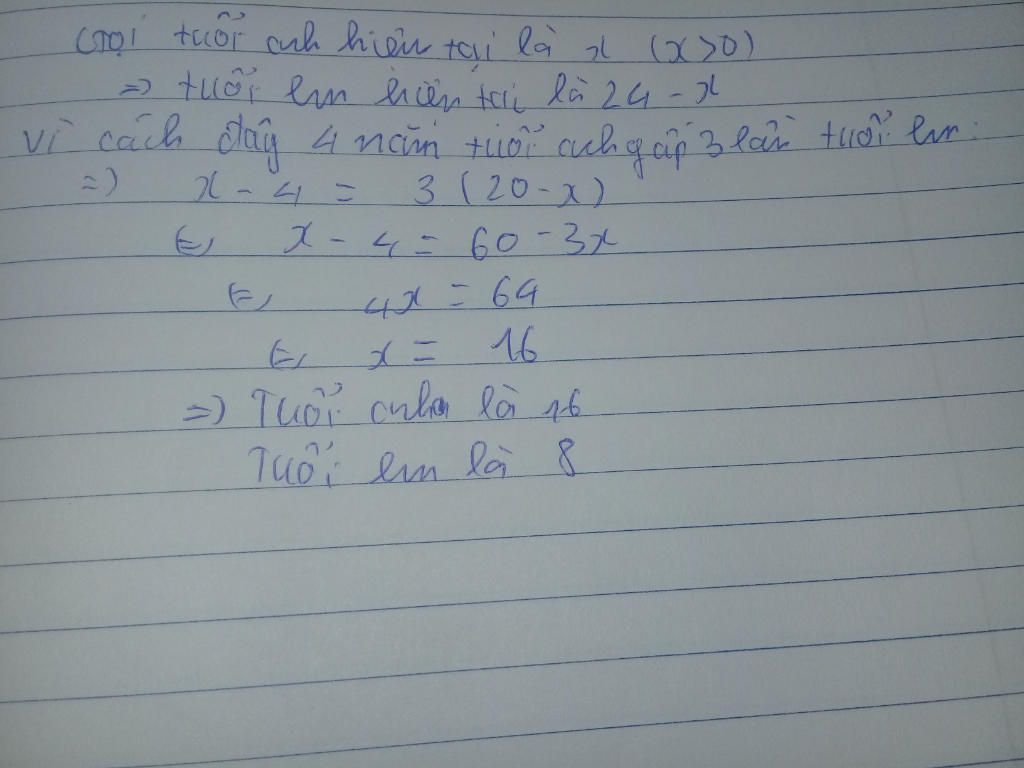 Gọi tuổi anh hiện tại là x (x>0)
=> tuổi em hiện tại là 24 - x
Vì cách đây 4 năm tuổi anh gấp 3 lần tuổi em:
=> x - 4 = 3 (20 - x)
<=> x - 4 = 60 - 3x
<=> 4x = 64
<=> x = 16
=> Tuổi anh là 16
Tuổi em là 8